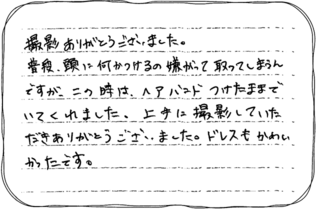 撮影ありがとうございました。
普段、頭に何かつけるの嫌がって取ってしまうん
ですが、この時は、ヘアバンドつけたままで
いてくれました、上手に撮影していた
だきありがとうございました。ドレスもかわい
かったです。